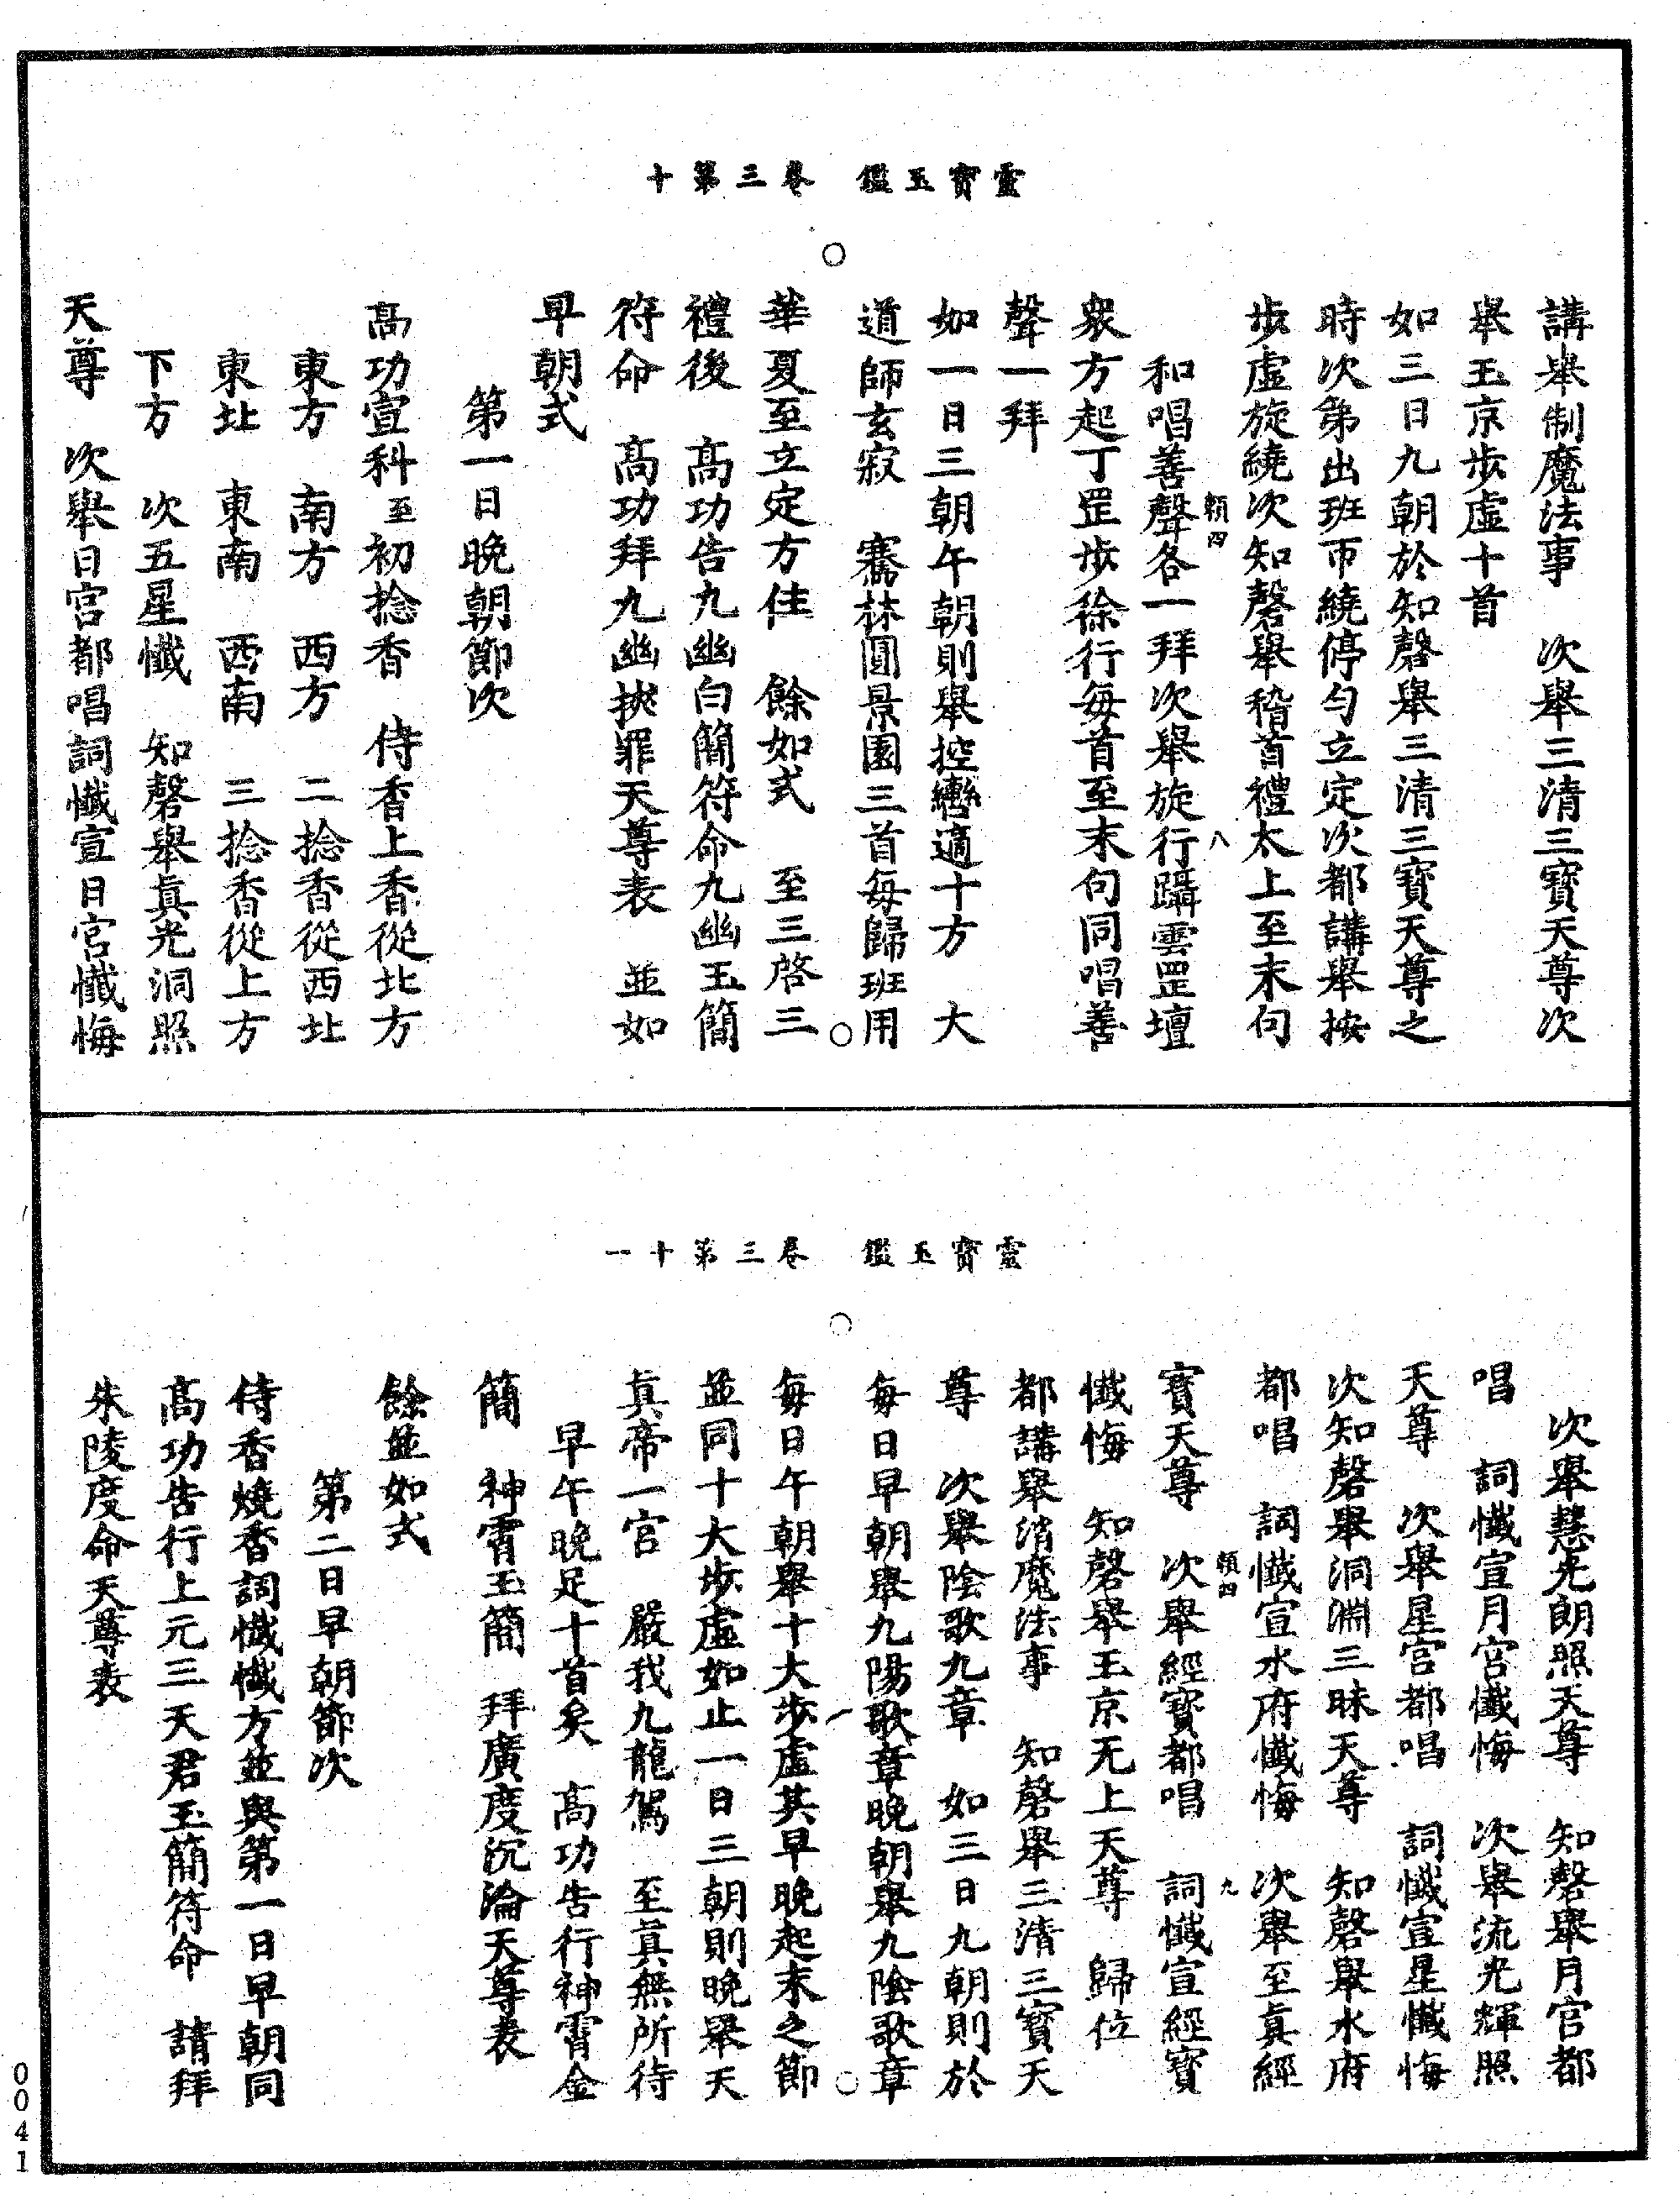 靈寶玉鑑　卷三第十
講舉制魔法事　次舉三清三寶天尊次
舉玉京步虛十首
如三日九朝於知磬舉三清三寶天尊之
時次第出班帀繞停勻立定次都講舉按
步虛旋繞次知磬舉稽首禮太上至末句
頼四　八
和唱善聲各一拜次舉旋行躡雲罡壇
衆方起丁罡步徐行每首至末句同唱善
聲一拜
如一日三朝午朝則舉控轡適十方　大
道師玄寂　騫林圓景園三首每歸班用
華夏至立定方住　餘如式　至三啓三
禮後　高功告九幽白簡符命九幽玉簡
符命　高功拜九幽拔罪天尊表　並如
早朝式
第一日晚朝節次
高功宣科至初捻香　侍香上香從北方
東方　南方　西方　二捻香從西北
東北　東南　西南　三捻香從上方
下方　次五星懺　知磬舉真光洞照
天尊　次舉日宮都唱詞懺宣日宮懺悔
靈寶玉鑑　卷三第十一
次舉慧光朗照天尊　知磬舉月宮都
唱　詞懺宣月宮懺悔　次舉流光輝照
天尊　次舉星宮都唱　詞懺宣星懺悔
次知磬舉洞淵三昧天尊　知磬舉水府
都唱　詞懺宣水府懺悔　次舉至真經
頼四　九
寶天尊　次舉經寶都唱　詞懺宣經寶
懺悔　知磬舉玉京无上天尊　歸位
都講舉消魔法事　知磬舉三清三寶天
尊　次舉陰歌九章　如三日九朝則於
每日早朝舉九陽歌章晚朝舉九陰歌章
每日午朝舉十大步虛其早晚起末之節
並同十大步虛如止一日三朝則晚舉天
真帝一宮　嚴我九龍駕　至真無所待
早午晚足十首矣　高功告行神霄金
簡　神霄玉簡　拜廣度沉淪天尊表
餘並如式
第二日早朝節次
侍香燒香詞懺懺方並與第一日早朝同
高功告行上元三天君玉簡符命　請拜
朱陵度命天尊表
0041